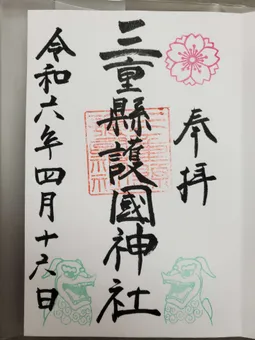 奉拝
三重縣護國神社
令和六年四月十六日